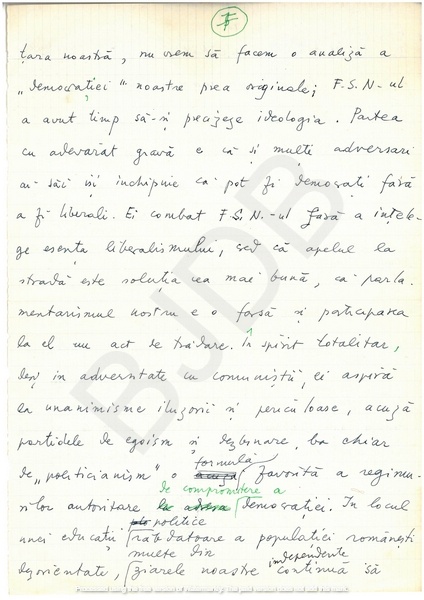 țara noastră, nu vrem să facem o analiză a
„democrației" noastre prea originale; F.S.N.-ul
a avut timp să-și precizeze ideologia. Partea
cu adevărat gravă e că și mulți adversari
ai săi își închipuie că pot fi democrați fără
a fi liberali. Ei combat F.S.N.-ul fără a înțele-
ge esența liberalismului, cred că apelul la
stradă este soluția cea mai bună, că parla-
mentarismul nostru e o farsă și participarea
la el un act de trădare. În spirit totalitar,
deși în adversitate cu comuniștii, ei aspiră
la unanimisme iluzorii și periculoase, acuză
partidele de egoism și dezbinare, ba chiar
formulă
de „politicianism" o favorită a regimu-
de compromitere a
rilor autoritare democrației. În locul
politice
unei educații răbdătoare a populației românești
multe din independente
dezorientate, ziarele noastre continuă să
BJDB